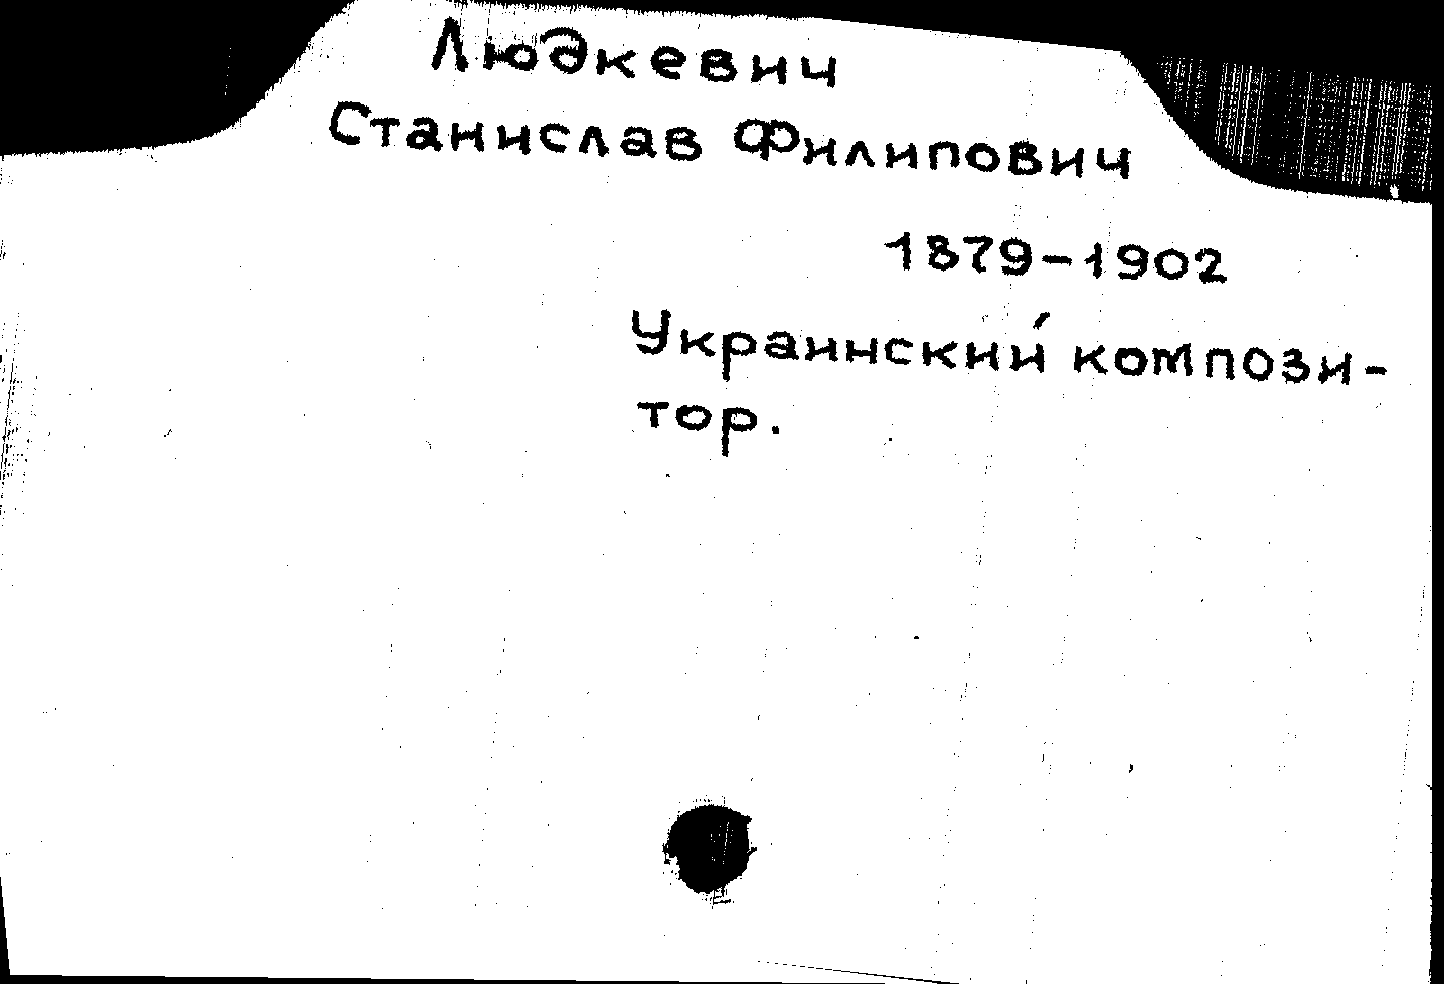 Людкевич
Станислав Филипович
1879-1902
Украинский компози-
тор.